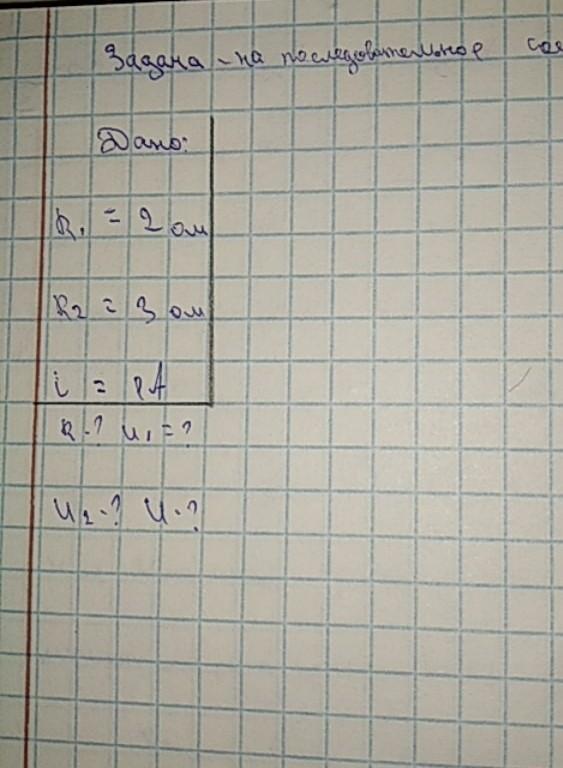 Задача - на последовательное сое
Дано:
R₁ = 2 ом
R₂ = 3 ом
i = 1A
R-? U₁=?
U₂-? U-?